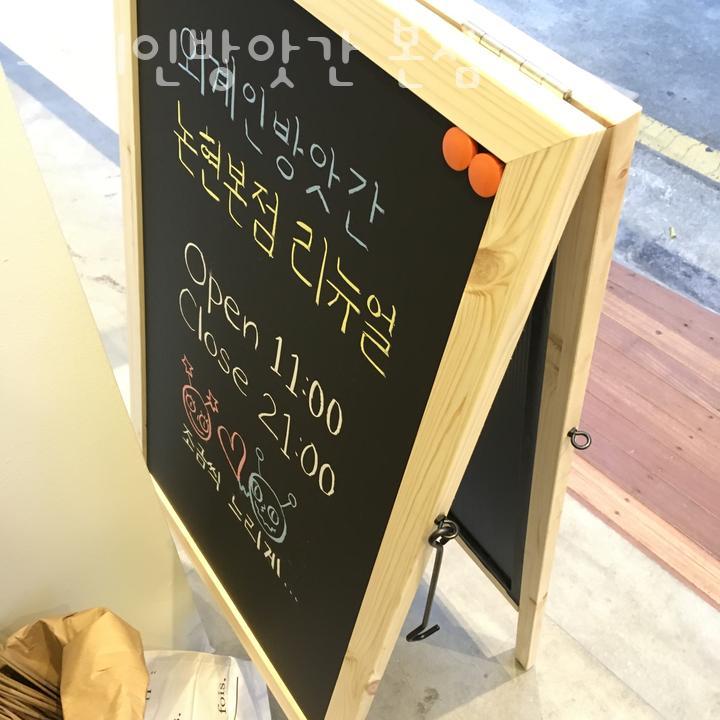 외계인방앗간 본점
외계인방앗간
논현본점 리뉴얼
Open 11:00
Close 21:00
조금씩 느리게...
fois,